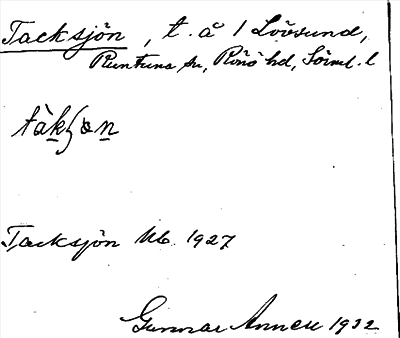 Tacksjön, t. å 1 Lövsund,
Runtuna sn, Rönö hd, Söml. l
Tacksjön Ub. 1927
Gunnar Annell 1932